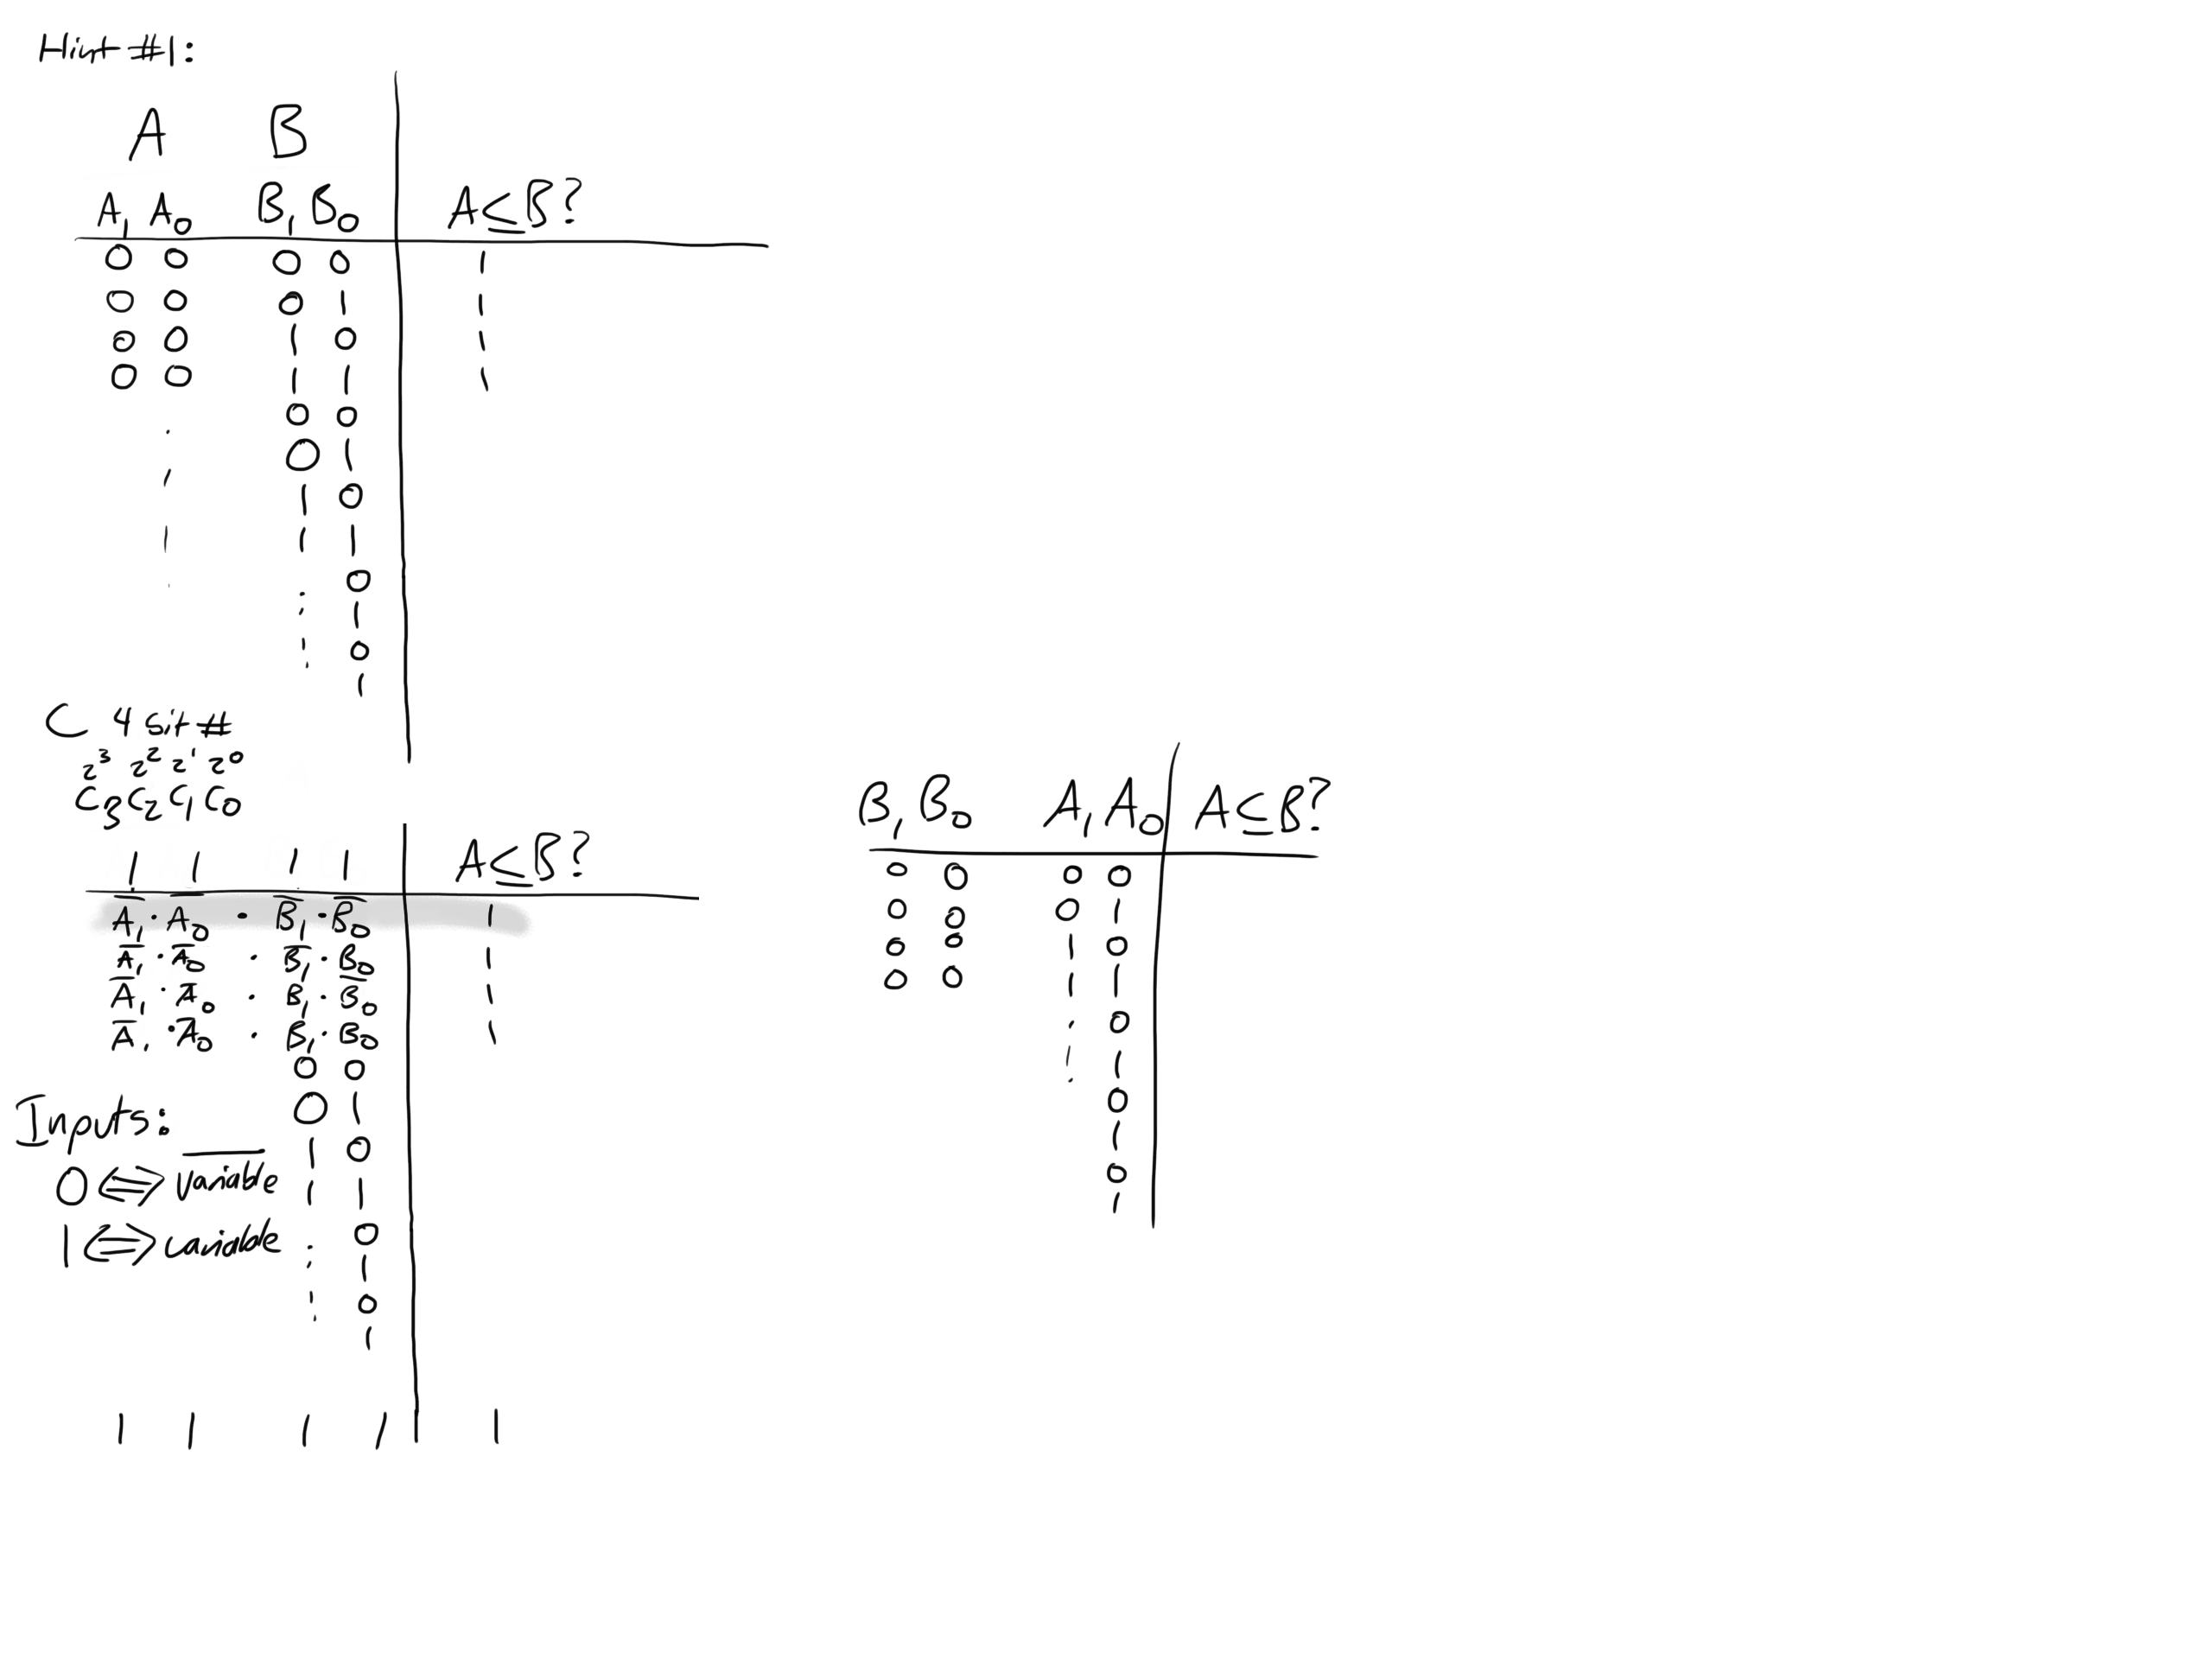 Hint #1:
A B
A₁ A₀ B₁ B₀ A≤B?
0 0 0 0 1
0 0 0 1 1
0 0 1 0 1
0 0 1 1 1
. 0 0
' 0 1
| 1 0
. 1 1
: 0
1
: 0
1
C 4 bit #
2³ 2² 2¹ 2⁰
C₃ C₂ C₁ C₀
1 1 1 1 A≤B?
A̅₁ · A̅₀ · B̅₁ · B̅₀ 1
A̅₁ · A̅₀ · B̅₁ · B₀ 1
A̅₁ · A̅₀ · B₁ · B̅₀ 1
A̅₁ · A̅₀ · B₁ · B₀ 1
0 0
0 1
1 0
1 1
: 0
1
: 0
1
1 1 1 1 1
Inputs:
0 ⇔ v̅a̅r̅i̅a̅b̅l̅e̅
1 ⇔ variable
B₁ B₀ A₁ A₀ A≤B?
0 0 0 0
0 0 0 1
0 0 1 0
0 0 1 1
. 0
| 1
. 0
1
0
1